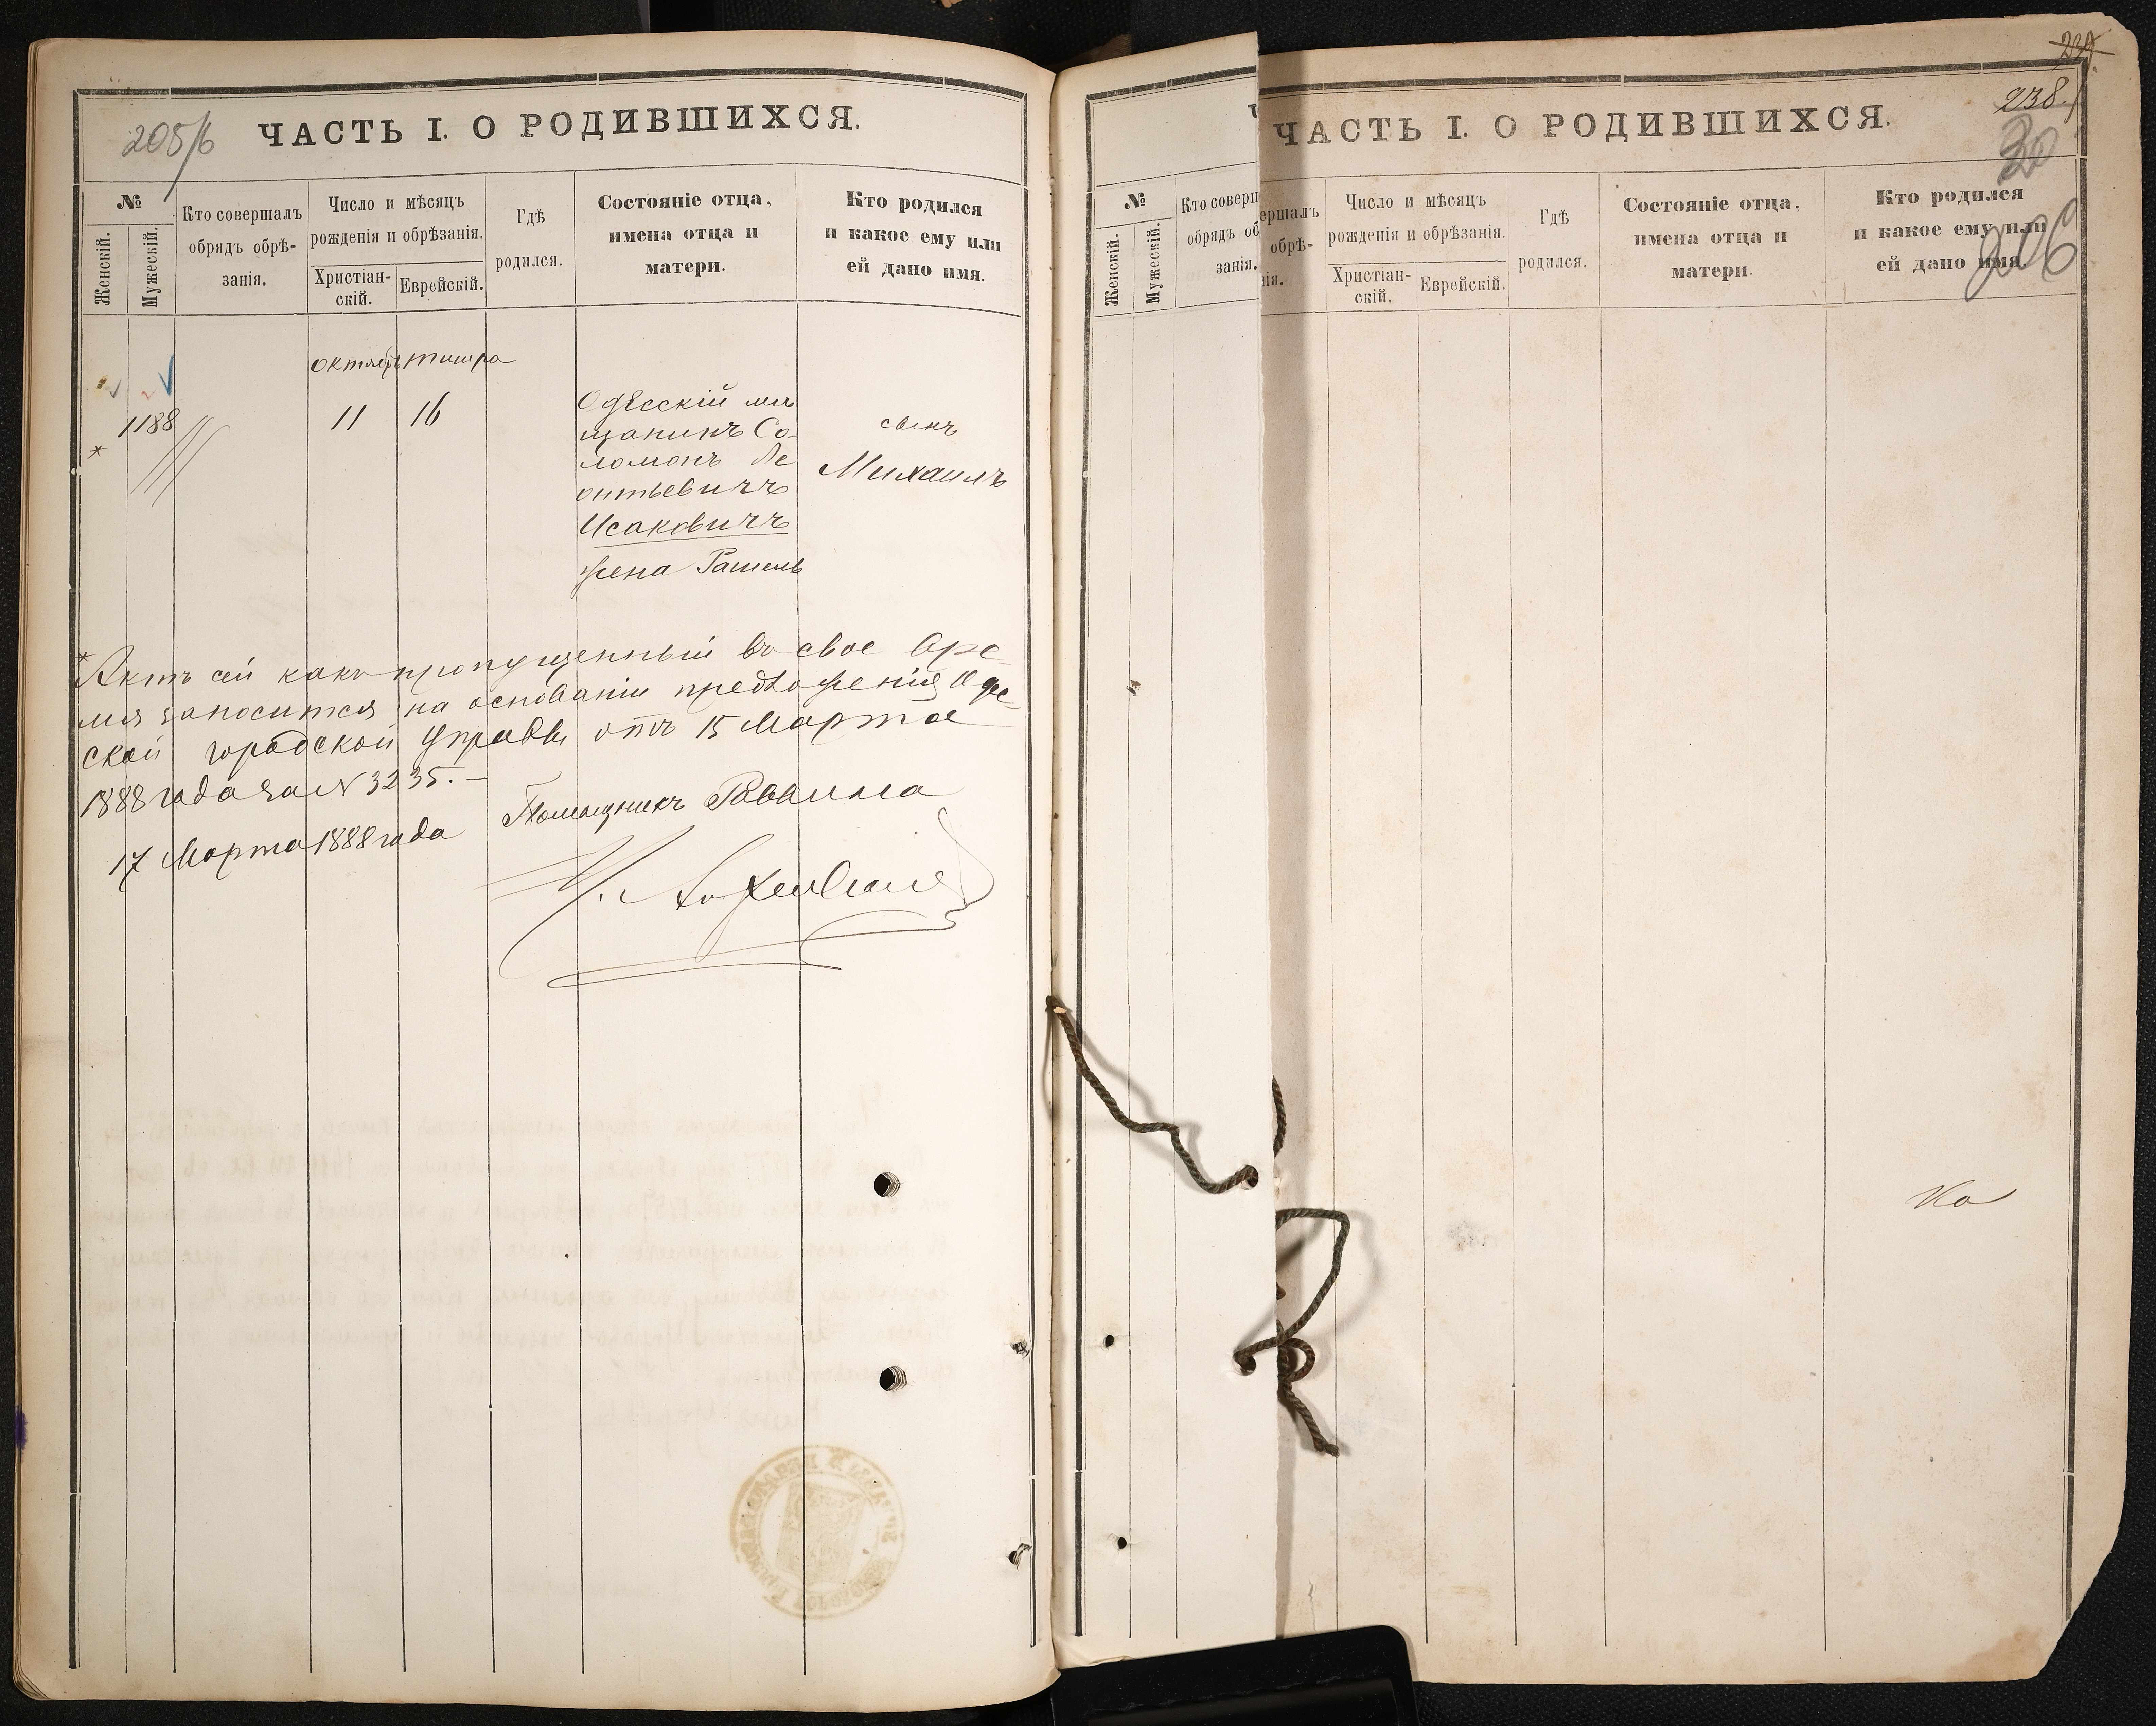 205/6
ЧАСТЬ I. О РОДИВШИХСЯ.
№
Женскій.
Мужескій.
Кто совершалъ
обрядъ обрѣ-
занія.
Число и мѣсяцъ
рожденія и обрѣзанія.
Христіан-
скій.
Еврейскій.
Гдѣ
родился.
Состояніе отца,
имена отца и
матери.
Кто родился
и какое ему или
ей дано имя.
октябрь тишра
1188
11
16
Одесскій мѣ
щанинъ Со-
ломонъ Ле
онтьевичъ
Исаковичъ
жена Рашель
сынъ
Михаилъ
*
* Актъ сей какъ пропущенный въ свое вре-
мя заносится на основаніи предложенія Одес-
ской городской Управы отъ 15 Марта
1888 года за N 3235. —
17 Марта 1888 года
Помощникъ Раввина
ЧАСТЬ I. О РОДИВШИХСЯ.
238.
30
206
№
Женскій.
Мужескій.
Кто соверш
обрядъ об
занія.
ершалъ
обрѣ-
ія.
Число и мѣсяцъ
рожденія и обрѣзанія.
Христіан-
скій.
Еврейскій.
Гдѣ
родился.
Состояніе отца,
имена отца и
матери.
Кто родился
и какое ему или
ей дано имя.
Ка